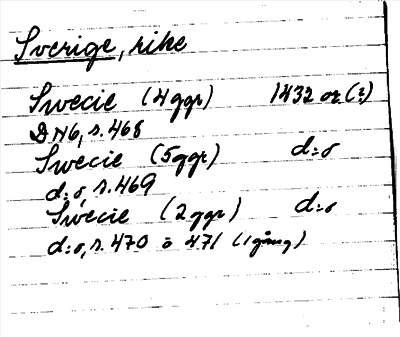 Sverige, rike
Swecie (4 ggr) 1432 or (?)
DN6, s. 468
Swecie (5 ggr) d:o
d:o, s. 469
Swecie (2 ggr) d:o
d:o, s. 470 o 471 (1 gång)